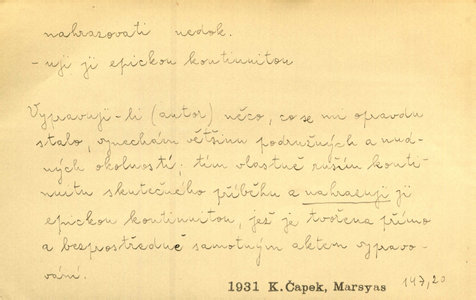 nahrazovati nedok.
-uji ji epickou kontinuitou
Vypravuji-li (autor) něco, co se mi opravdu
stalo, vynechám většinu podružných a nud-
ných okolností; tím vlastně ruším konti-
nuitu skutečného příběhu a nahrazuji ji
epickou kontinuitou, jež je tvořena přímo
a bezprostředně samotným aktem vypravo-
vání.
1931 K.Čapek, Marsyas 147,20